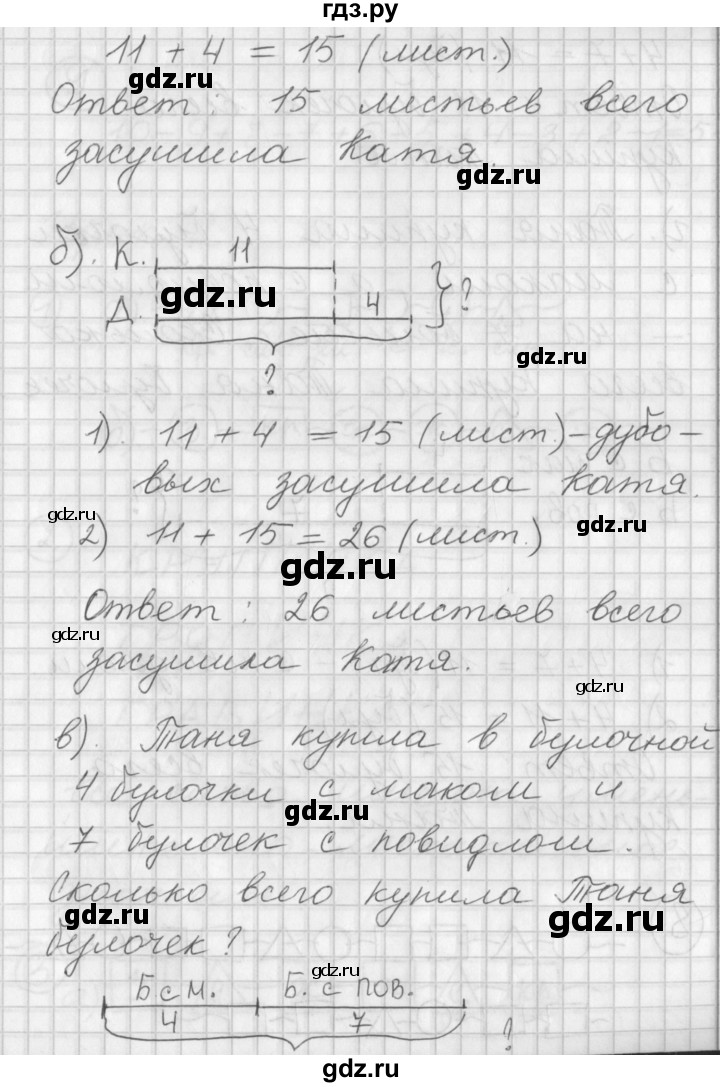 гдз.ру
11 + 4 = 15 (лист.)
gdz.ru
Ответ: 15 листьев всего
засушила Катя.
gdz.ru
б). К. 11
gdz.ru
Д. 4 ?
gdz.ru
?
1). 11 + 4 = 15 (лист.) - дубо-
вых засушила Катя.
gdz.ru
gdz.ru
2) 11 + 15 = 26 (лист.)
gdz.ru
Ответ: 26 листьев всего
gdz.ru
засушила Катя.
gdz.ru
в). Таня купила в булочной
4 булочки с маком и
gdz.ru
7 булочек с повидлом.
Сколько всего купила Таня
gdz.ru
gdz.ru
булочек?
gdz.ru
Б с м. Б. с пов.
4 7 ?
gdz.ru
gdz.ru